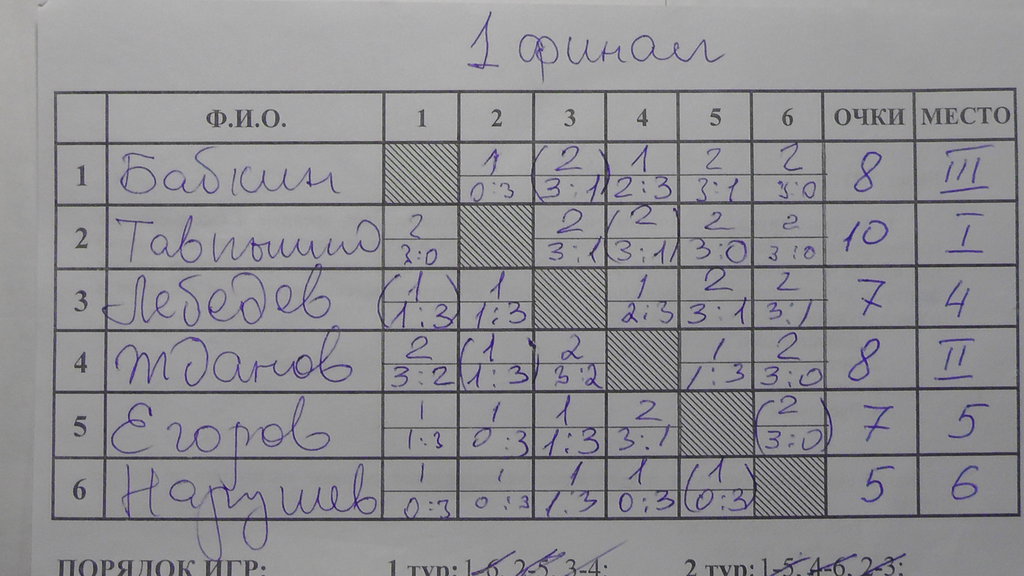 1 финал
Ф.И.О. 1 2 3 4 5 6 ОЧКИ МЕСТО
1 Бабкин 1 0:3 (2 3:1) 1 2:3 2 3:1 2 3:0 8 III
2 2 3:0 2 3:1 (2 3:1) 2 3:0 2 3:0 10 I
3 Лебедев (1 1:3) 1 1:3 1 2:3 2 3:1 2 3:1 7 4
4 Жданов 2 3:2 (1 1:3) 2 3:2 1 1:3 2 3:0 8 II
5 Егоров 1 1:3 1 0:3 1 1:3 2 3:1 (2 3:0) 7 5
6 Нарушев 1 0:3 1 0:3 1 1:3 1 0:3 (1 0:3) 5 6
ПОРЯДОК ИГР: 1 тур: 1-6, 2-5, 3-4; 2 тур: 1-5, 4-6, 2-3;